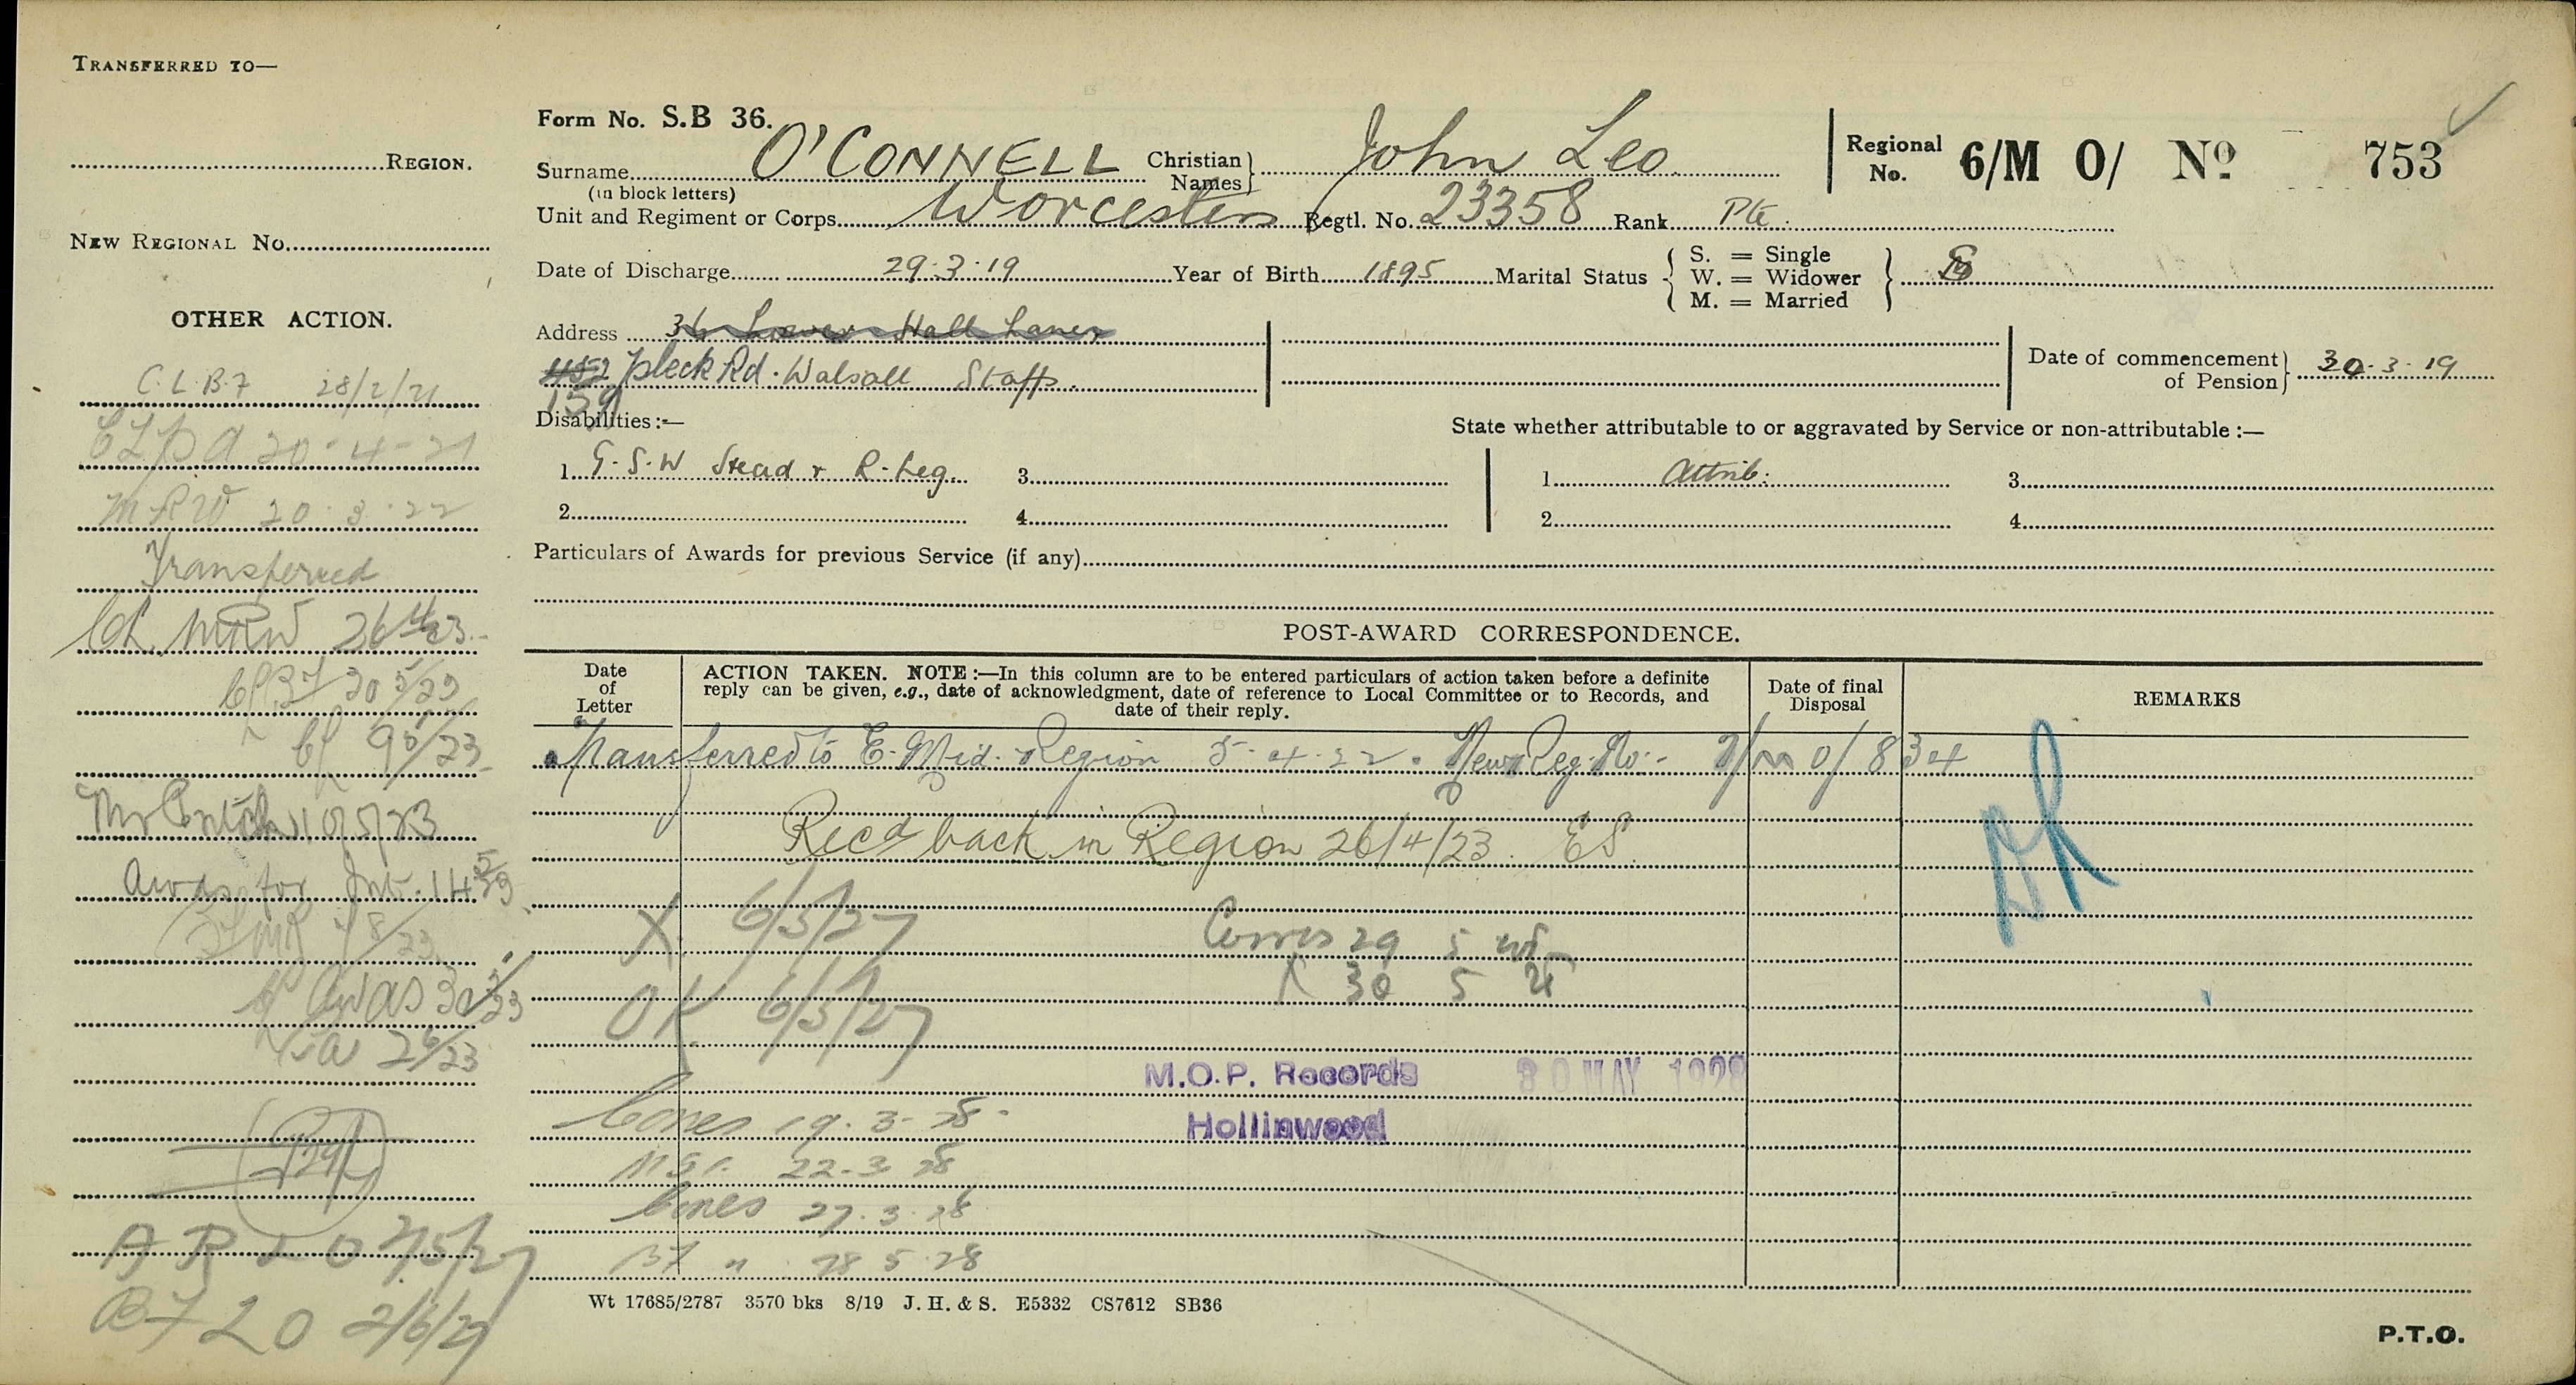 TRANSFERRED TO—
REGION.
NEW REGIONAL No.
OTHER ACTION.
C.L.B.7 28/2/21
20-4-21
MRW 20.3.22
Transferred
MRW 26/4/23
20 5/23
bf 9 5/23
10/5/23
for 14 5/23
8/23
26/23
A R L O 7/5/27
BF 20 2/6/27
Form No. S.B 36.
Surname O'CONNELL Christian Names John Leo
(in block letters)
Regional No. 6/M O/ No 753
Unit and Regiment or Corps Worcesters Regtl. No. 23358 Rank Pte.
Date of Discharge 29.3.19 Year of Birth 1895 Marital Status { S. = Single W. = Widower M. = Married } S
Address 36 Lower Hall Lane
452 Pleck Rd. Walsall Staffs.
159
Date of commencement of Pension 30.3.19
Disabilities:—
State whether attributable to or aggravated by Service or non-attributable :—
1. G.S.W Head & R. Leg. 3. 1. Attrib: 3.
2. 4. 2. 4.
Particulars of Awards for previous Service (if any)
POST-AWARD CORRESPONDENCE.
Date of Letter
ACTION TAKEN. NOTE :—In this column are to be entered particulars of action taken before a definite
reply can be given, e.g., date of acknowledgment, date of reference to Local Committee or to Records, and
date of their reply.
Date of final Disposal
REMARKS
Transferred to E. Mid. Region 5.4.22. New Reg. No. 7/M O/834
Recd back in Region 26/4/23. ES
X 6/5/27
Corres 29 5
30 5
OK 6/5/27
M.O.P. Records 30 MAY 1928
Hollinwood
Corres 19.3.28.
22.3.28
Corres 27.3.28
28 5 28
Wt 17685/2787 3570 bks 8/19 J. H. & S. E5332 CS7612 SB36
P.T.O.